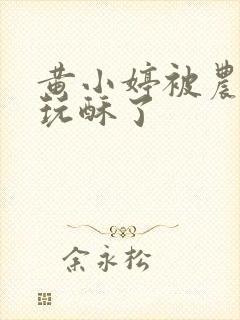 黄小婷被農
玩酥了
余永松